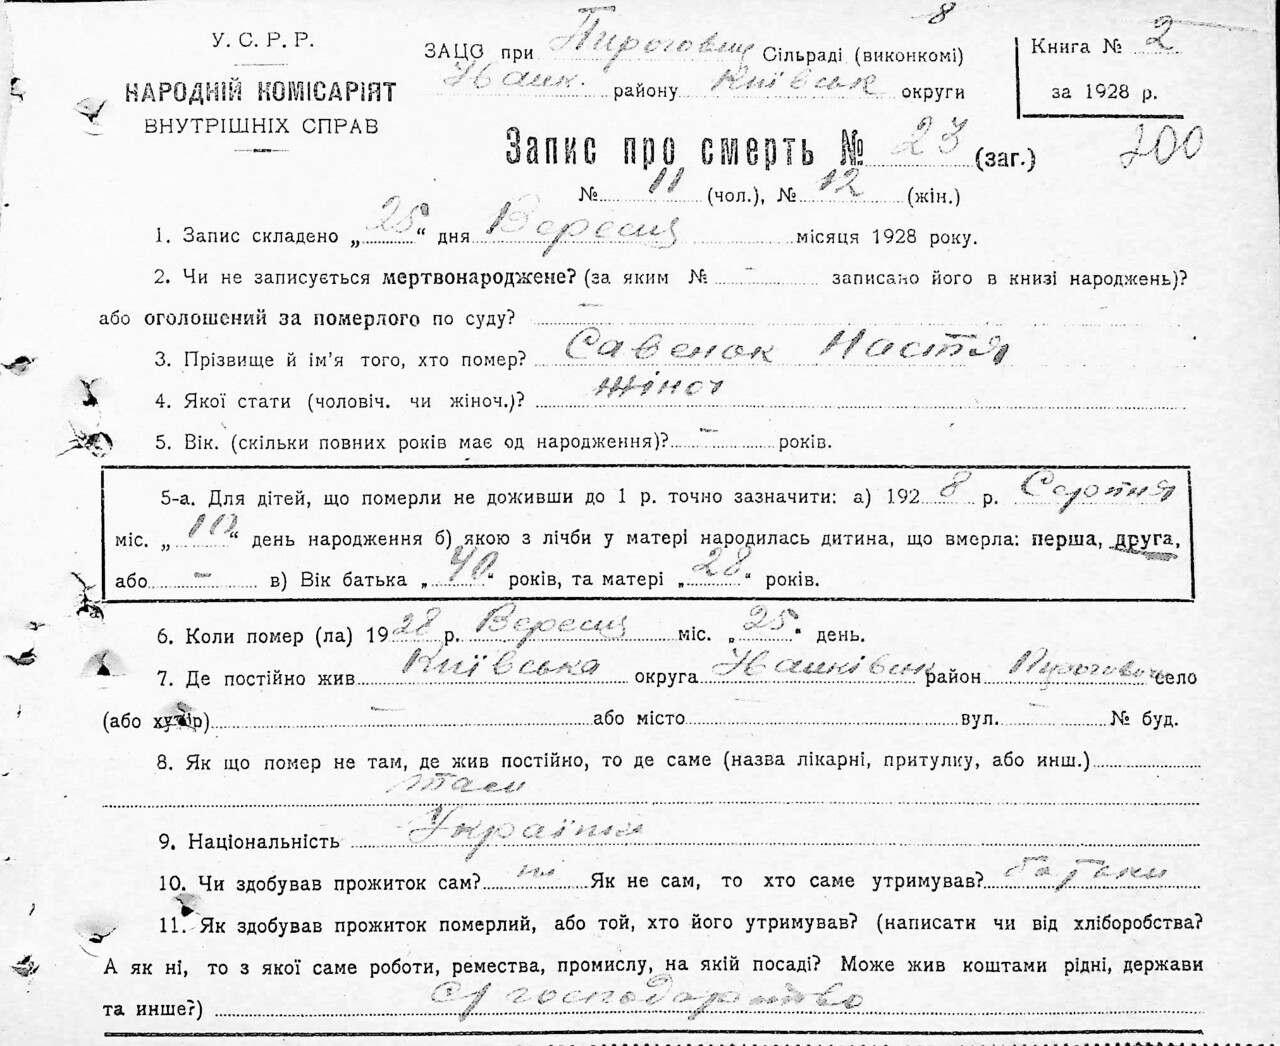 8
У. С. Р. Р.
НАРОДНІЙ КОМІСАРІЯТ
ВНУТРІШНІХ СПРАВ
ЗАЦС при Пироговиц Сільраді (виконкомі)
району Київськ округи
Книга № 2
за 1928 р.
Запис про смерть № 23 (заг.)
200
№ 11 (чол.), № 12 (жін.)
1. Запис складено „ 25 “ дня Вересня місяця 1928 року.
2. Чи не записується мертвонароджене? (за яким № - записано його в книзі народжень)?
або оголошений за померлого по суду? —
3. Прізвище й ім’я того, хто помер? Савенок Настя
4. Якої стати (чоловіч. чи жіноч.)? жіноч
5. Вік. (скільки повних років має од народження)? - років.
5-а. Для дітей, що померли не доживши до 1 р. точно зазначити: а) 192 8 р. Серпня
міс. „ “ день народження б) якою з лічби у матері народилась дитина, що вмерла: перша, друга,
або - в) Вік батька „ 40 “ років, та матері „ 28 “ років.
6. Коли помер (ла) 19 28 р. Вересня міс. „ 25 “ день.
7. Де постійно жив Київська округа район село
(або хутір) — або місто — вул. — № буд.
8. Як що помер не там, де жив постійно, то де саме (назва лікарні, притулку, або инш.)
там
9. Національність
10. Чи здобував прожиток сам? ні Як не сам, то хто саме утримував? батьки
11. Як здобував прожиток померлий, або той, хто його утримував? (написати чи від хліборобства?
А як ні, то з якої саме роботи, ремества, промислу, на якій посаді? Може жив коштами рідні, держави
та инше?) господарство